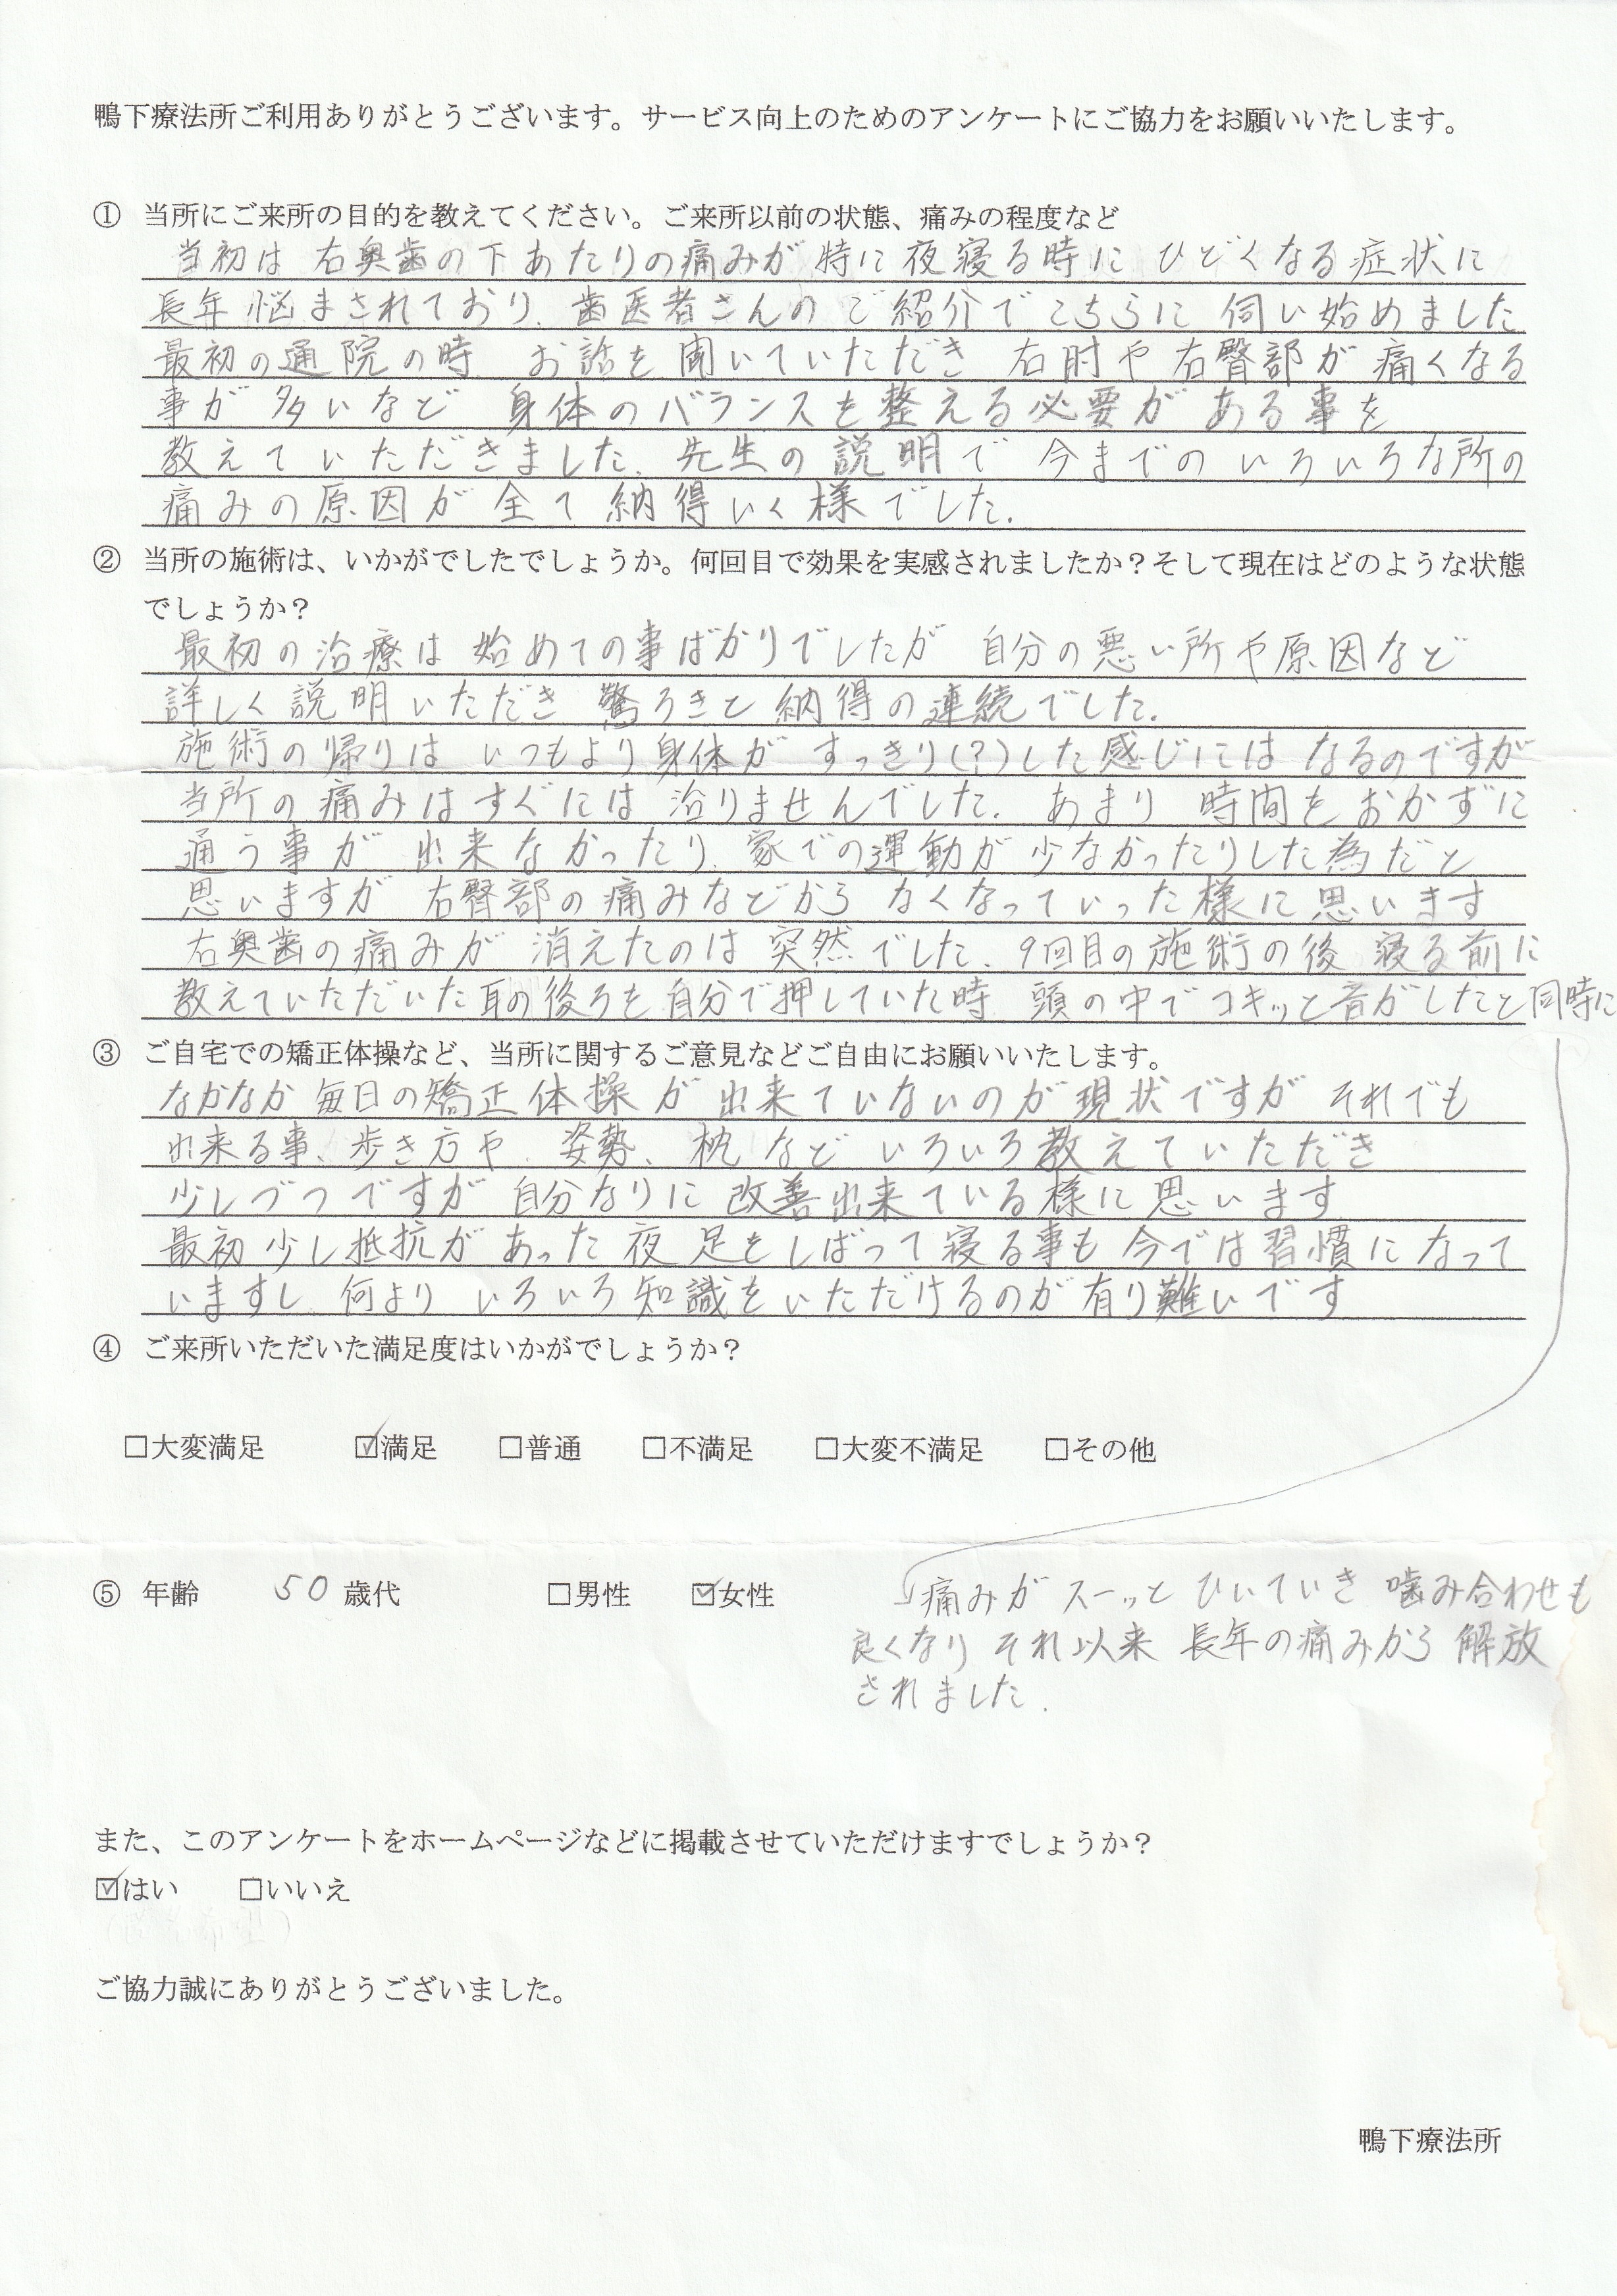 鴨下療法所ご利用ありがとうございます。サービス向上のためのアンケートにご協力をお願いいたします。
① 当所にご来所の目的を教えてください。ご来所以前の状態、痛みの程度など
当初は 右奥歯の下あたりの痛みが 特に夜寝る時に ひどくなる症状に
長年 悩まされており、歯医者さんの ご紹介で こちらに 伺い始めました
最初の通院の時 お話を 聞いていただき 右肘や右臀部が 痛くなる
事が 多いなど 身体のバランスを整える必要が ある事を
教えていただきました. 先生の説明で 今までの いろいろな所の
痛みの原因が 全て納得いく様でした.
② 当所の施術は、いかがでしたでしょうか。何回目で効果を実感されましたか？そして現在はどのような状態
でしょうか？
最初の治療は 始めての事ばかりでしたが 自分の悪い所や原因など
詳しく説明いただき 驚ろきと 納得の連続でした.
施術の帰りは いつもより身体が すっきり(?)した感じには なるのですが
当所の痛みはすぐには治りませんでした. あまり 時間をおかずに
通う事が 出来なかったり、家での運動が少なかったりした為だと
思いますが 右臀部の痛みなどから なくなっていった様に思います
右奥歯の痛みが 消えたのは 突然でした. 9回目の施術の後 寝る前に
教えていただいた耳の後ろを自分で押していた時 頭の中でコキッと音がしたと同時に
③ ご自宅での矯正体操など、当所に関するご意見などご自由にお願いいたします。
なかなか 毎日の矯正体操が 出来ていないのが現状ですが それでも
出来る事、歩き方や、姿勢、枕など いろいろ教えていただき
少しづつですが 自分なりに 改善出来ている様に思います
最初 少し抵抗が あった 夜 足をしばって寝る事も 今では習慣になって
いますし、何より いろいろ知識をいただけるのが有り難いです
④ ご来所いただいた満足度はいかがでしょうか？
□大変満足 ☑満足 □普通 □不満足 □大変不満足 □その他
⑤ 年齢 50 歳代 □男性 ☑女性
痛みが スーッと ひいていき 噛み合わせも
良くなり それ以来 長年の痛みから 解放
されました.
また、このアンケートをホームページなどに掲載させていただけますでしょうか？
☑はい □いいえ
ご協力誠にありがとうございました。
鴨下療法所